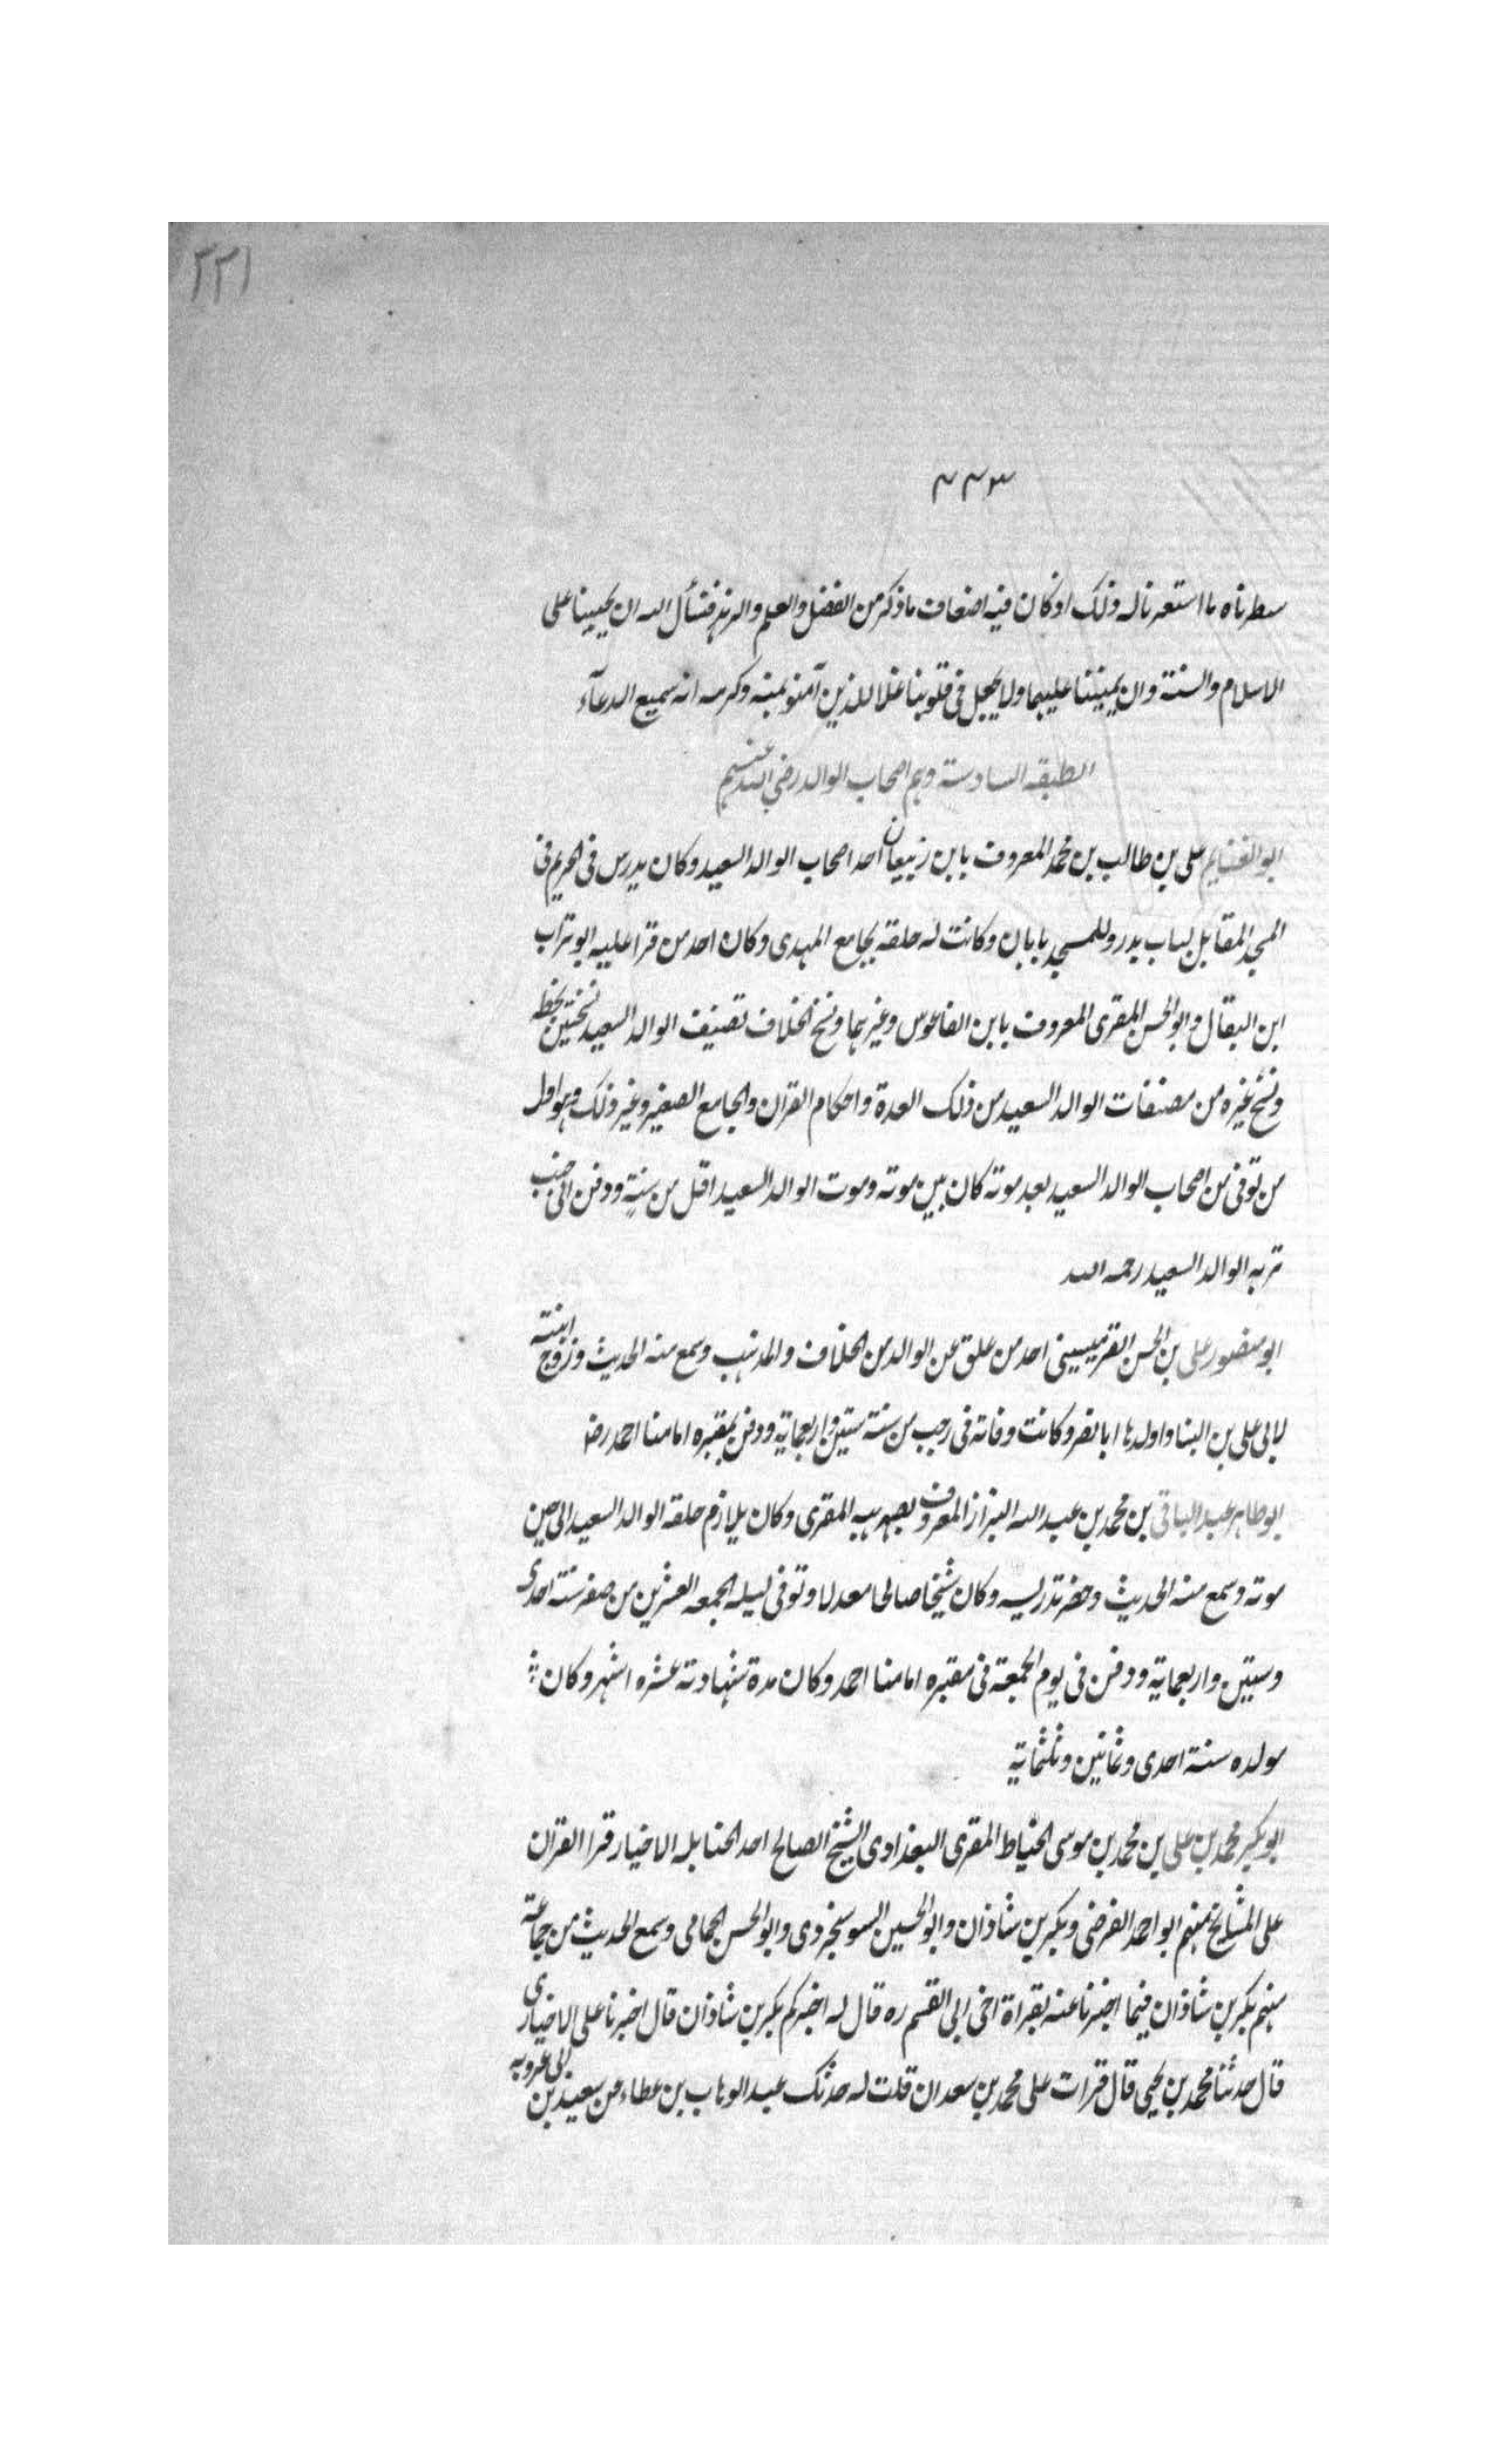 ٢٢١
٣٣٣
سطرناه ما استعرناله وذلك اذ كان فيه اضعاف ماذكر من الفضل والعلم والزهد فنسأل الله ان يحيينا على
الاسلام والسنة وان يميتنا عليهما ولا يجعل فى قلوبنا غلا للذين آمنو بمنه وكرمه انه سميع الدعآء
الطبقه السادسة وهم اصحاب الوالد رضي الله عنهم
ابو الغنايم على بن طالب بن محمد المعروف بابن زبيبان احد اصحاب الوالد السعيد وكان يدرس فى الحريم فى
المسجد المقابل لباب بدر وللمسجد بابان وكانت له حلقه بجامع المهدى وكان احد من قرا عليه ابو تراب
ابن البقال وابو الحسن المقرى المعروف بابن الفاعوس وغيرهما ونسخ الخلاف تصنيف الوالد السعيد نسختين بخطه
ونسخ غيره من مصنفات الوالد السعيد من ذلك العدة واحكام القران والجامع الصغير وغير ذلك وهو اول
من توفى من اصحاب الوالد السعيد بعد موته كان بين موته وموت الوالد السعيد اقل من سنةٍ ودفن الى جنب
تربه الوالد السعيد رحمه الله
ابو منصور على بن الحسن القرميسينى احد من علق عن الوالد من الخلاف والمذهب وسمع منه الحديث وزوج ابنته
لابى على بن البنا واولدها ابا نصر وكانت وفاته فى رجب من سنة ستين واربعماية ودفن بمقبره امامنا احمد رضہ
ابو طاهر عبد الباقى بن محمد بن عبد الله البزاز المعروف بصهر هبه المقرى وكان يلازم حلقه الوالد السعيد الى حين
موته وسمع منه الحديث وحضر تدريسه وكان شيخا صالحا معدلا وتوفى ليله الجمعه العشرين من صفر سنه احدى
وستين واربعماية ودفن فى يوم الجمعة فى مقبره امامنا احمد وكان مدة شهادته عشره اشهر وكان
مولده سنة احدى وثمانين وثلثماية
ابو بكر محمد بن على بن محمد بن موسى الخياط المقرى البغدادى الشيخ الصالح احد الحنابله الاخيار قرا القران
على المشايخ منهم ابو احمد الفرضى وبكر بن شاذان وابو الحسين السوسنجردى وابو الحسن الحمامى وسمع الحديث من جماعة
منهم بكر بن شاذان فيما اخبرنا عنه بقراة اخى ابى القسم ره قال له اخبركم بكر بن شاذان قال اخبرنا على الاخبارى
قال حدثنا محمد بن يحيى قال قرات على محمد بن سعدان قلت له حدثك عبد الوهاب بن عطاء عن سعيد بن ابى عروبه